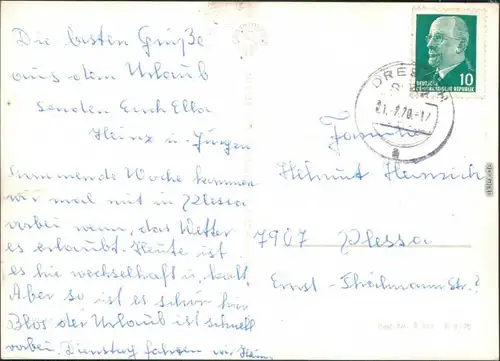 Die besten Grüße
aus dem Urlaub
senden Euch Ella
Heinz u. Jürgen
kommende Woche kommen
wir mal mit in Plessa
vorbei wenn, das Wetter
es erlaubt. Heute ist
es hie wechselhaft u. kalt.
Aber so ist es schön hier
Blos der Urlaub ist schnell
vorbei. Dienstag fahren wir Heim
10
DEUTSCHE
DEMOKRATISCHE REPUBLIK
DRESDEN
21.-7.70.-17
Familie
Helmut Heinrich
7907 Plessa
Ernst-Thälmann Str. ?